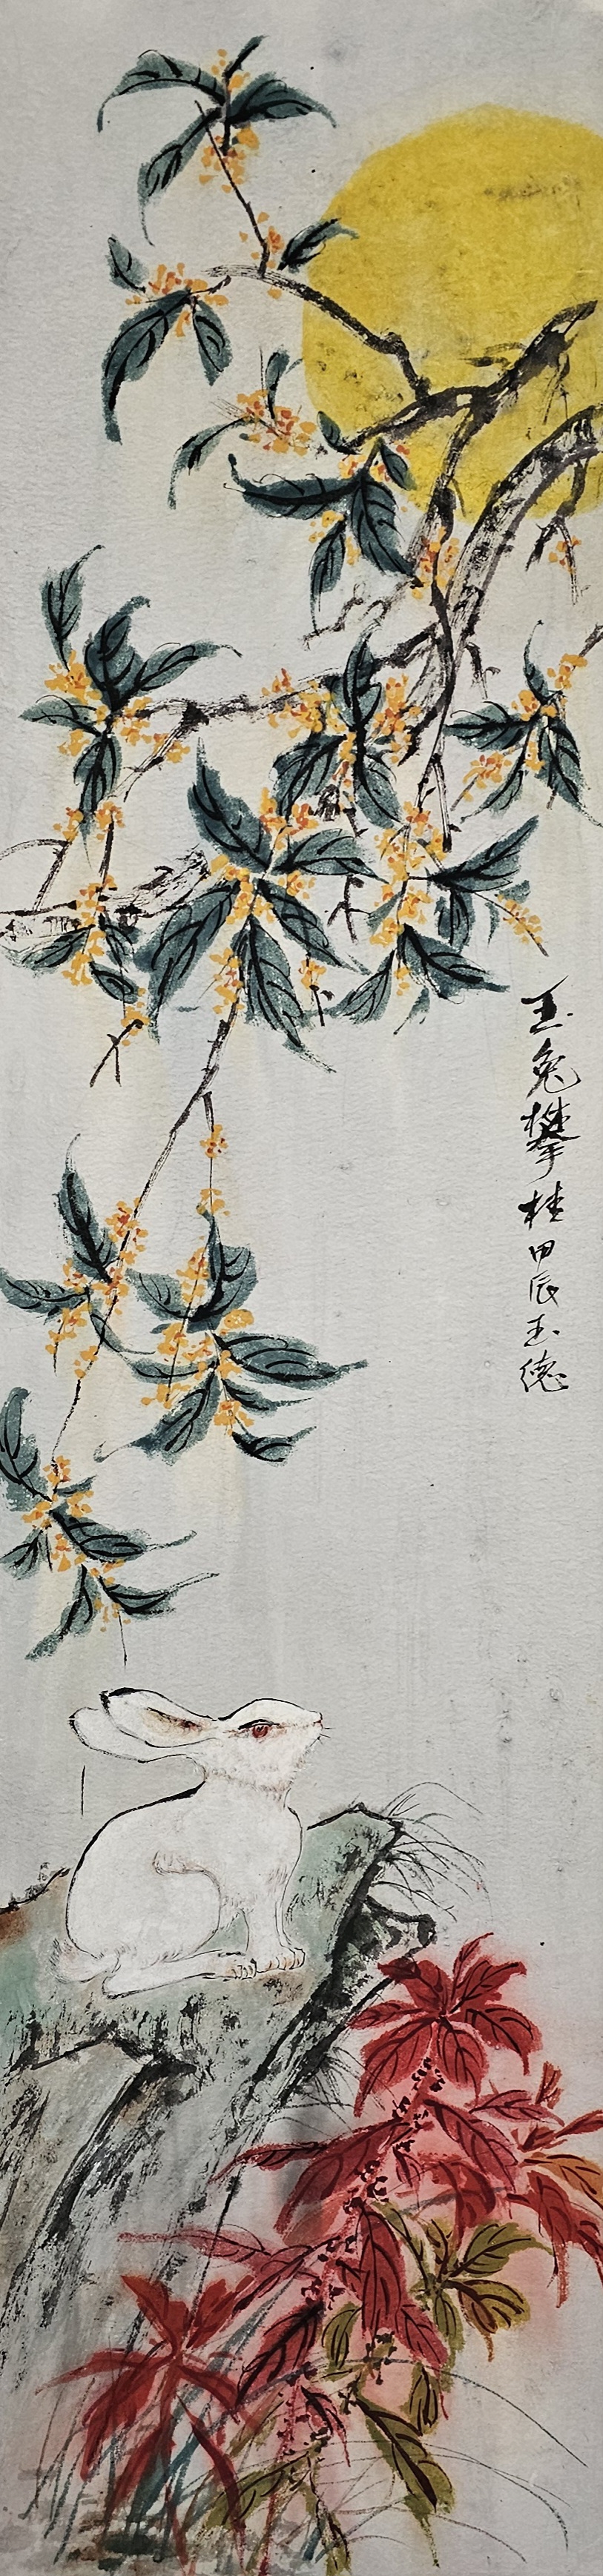 玉兔攀桂甲辰玉德